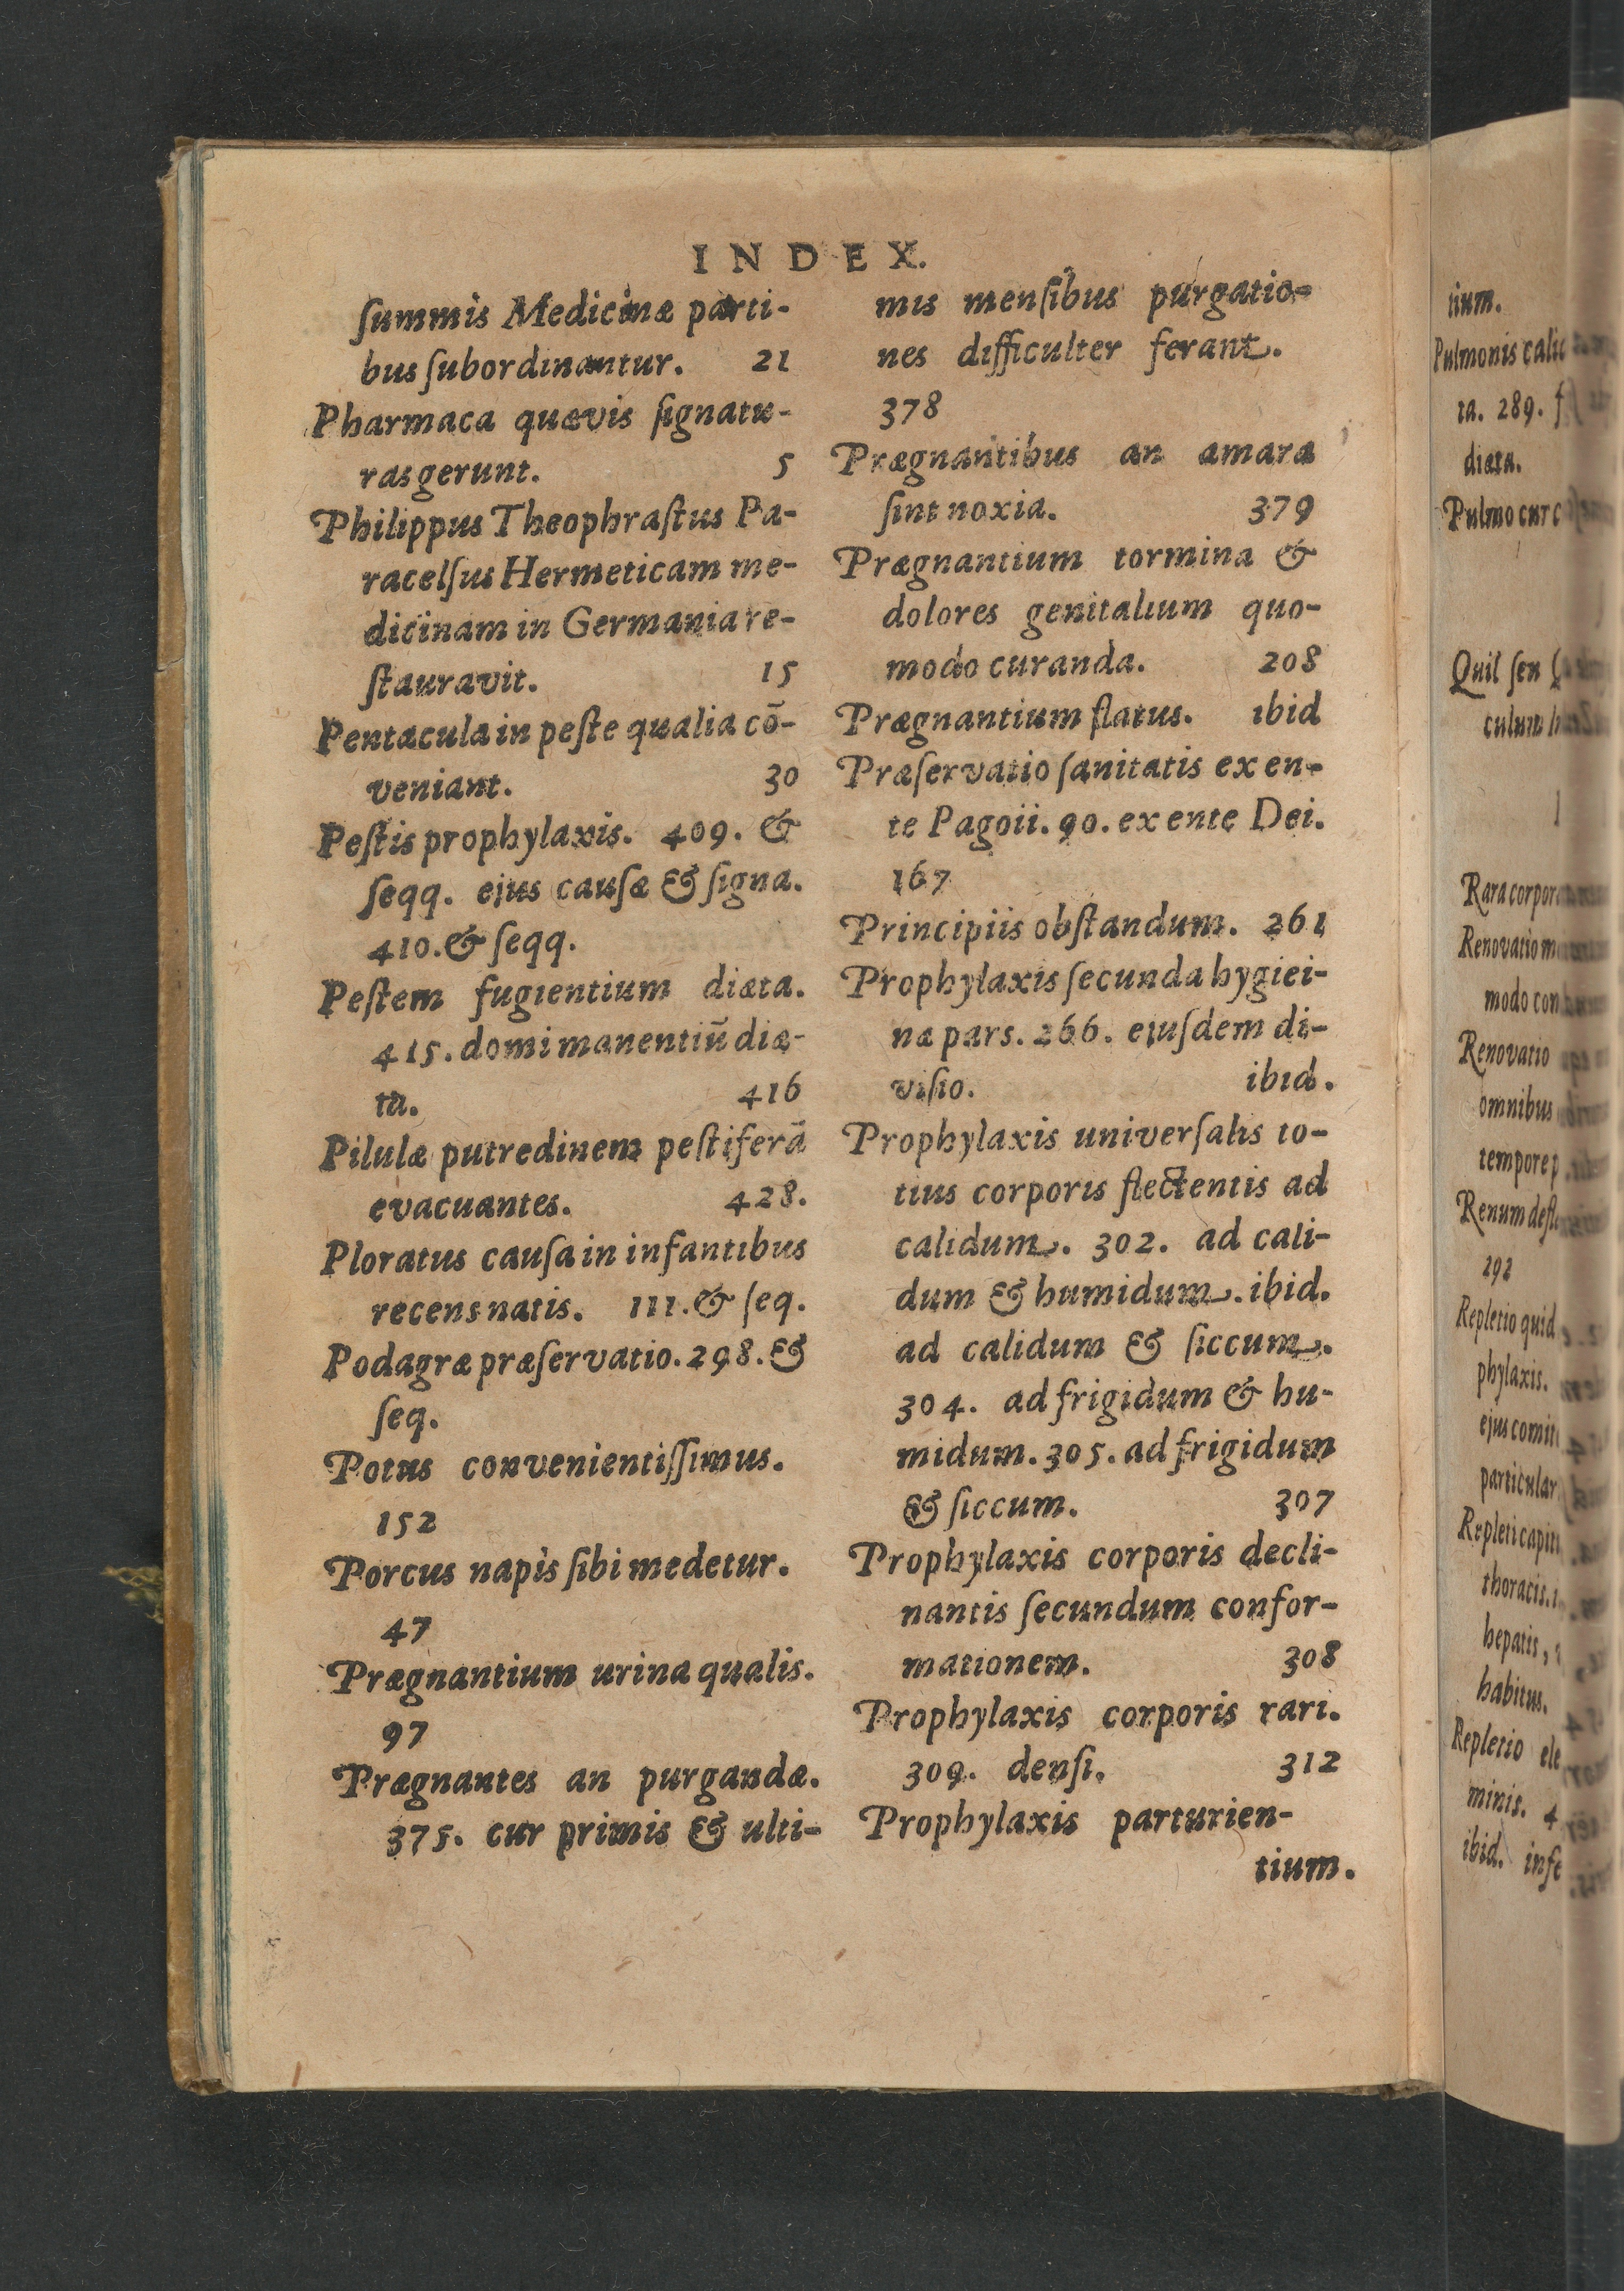 INDEX.
ſummis Medicinæ parti-
bus ſubordinantur. 21
Pharmaca quævis ſignatu-
ras gerunt. 5
Philippus Theophraſtus Pa-
racelſus Hermeticam me-
dicinam in Germania re-
ſtauravit. 15
Pentacula in peſte qualia cō-
veniant. 30
Peſtis prophylaxis. 409. &
ſeqq. ejus cauſæ & ſigna.
410. & ſeqq.
Peſtem fugientium diæta.
415. domi manentiū diæ-
ta. 416
Pilulæ putredinem peſtiferā
evacuantes. 428.
Ploratus cauſa in infantibus
recens natis. 111. & ſeq.
Podagræ præſervatio. 298. &
ſeq.
Potus convenientiſſimus.
152
Porcus napis ſibi medetur.
47
Prægnantium urina qualis.
97
Prægnantes an purgandæ.
375. cur primis & ulti-
mis menſibus purgatio-
nes difficulter ferant.
378
Prægnantibus an amara
ſint noxia. 379
Prægnantium tormina &
dolores genitalium quo-
modo curanda. 208
Prægnantium flatus. ibid
Præſervatio ſanitatis ex en-
te Pagoii. 90. ex ente Dei.
167
Principiis obſtandum. 261
Prophylaxis ſecunda hygiei-
næ pars. 266. ejuſdem di-
viſio. ibid.
Prophylaxis univerſalis to-
tius corporis flectentis ad
calidum. 302. ad cali-
dum & humidum. ibid.
ad calidum & ſiccum.
304. ad frigidum & hu-
midum. 305. ad frigidum
& ſiccum. 307
Prophylaxis corporis decli-
nantis ſecundum confor-
mationem. 308
Prophylaxis corporis rari.
309. denſi. 312
Prophylaxis parturien-
tium.
tium.
Pulmonis
ta. 289.
diæta.
Pulmo cur
Quil ſen
culum
Rara
Renovatio
modo
Renovatio
omnibus
tempore
Renum
292
Repletio quid
phylaxis.
ejus
Repleti
thoracis.
hepatis,
habitus.
Repletio
minis. 4
ibid.